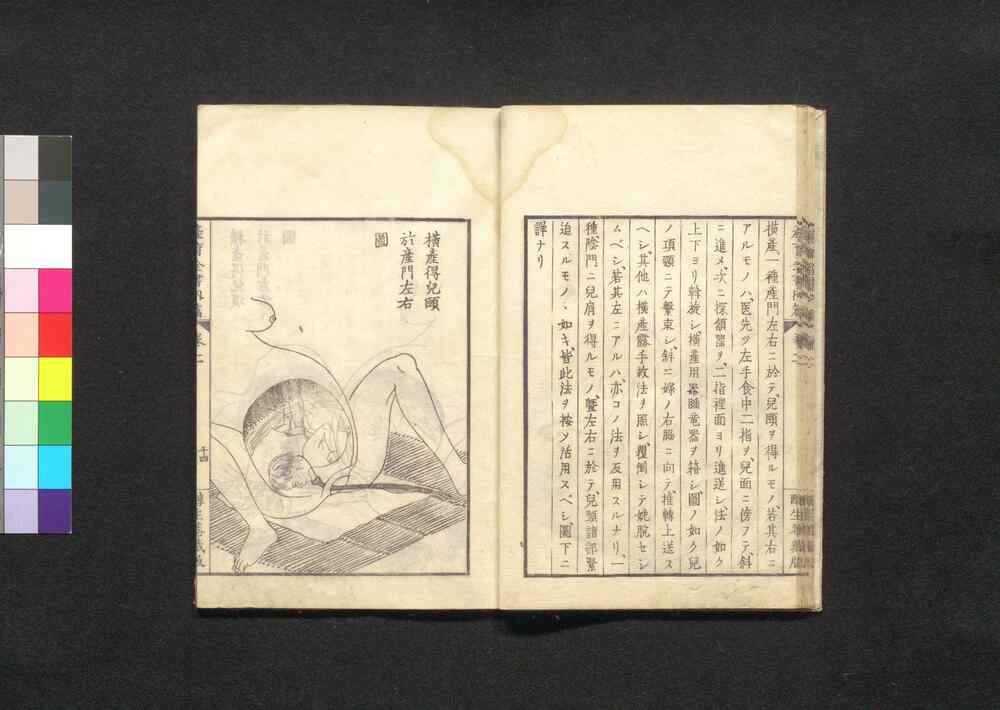 横産一種産門左右ニ於テ兒頤ヲ得ルモノ、若其右ニ
アルモノハ、医先ツ左手食中二指ヲ、兒面ニ傍フテ、斜
ニ進メ、次ニ探頷器ヲ、二指裡面ヨリ進送シ、法ノ如ク
上下ヨリ斡旋シ、横産用睡竜器ヲ、圖ノ如ク兒
ノ項頸ニテ繋束シ、斜ニ婦ノ右腸ニ向テ、推轉上送ス
ヘシ、其他ハ横産露手救法ヲ照シ、覆倒シテ娩脱セシ
ムベシ、若其左ニアルハ、亦コノ法ヲ反用スルナリ、一
種陰門ニ兒肩ヲ得ルモノ、曁左右ニ於テ、兒頸諸部緊
迫スルモノヽ如キ、皆此法ヲ按ソ活用スベシ、圖下ニ
詳ナリ
横産得兒頤
於産門左右
圖
産育全書内篇
卷二
十四